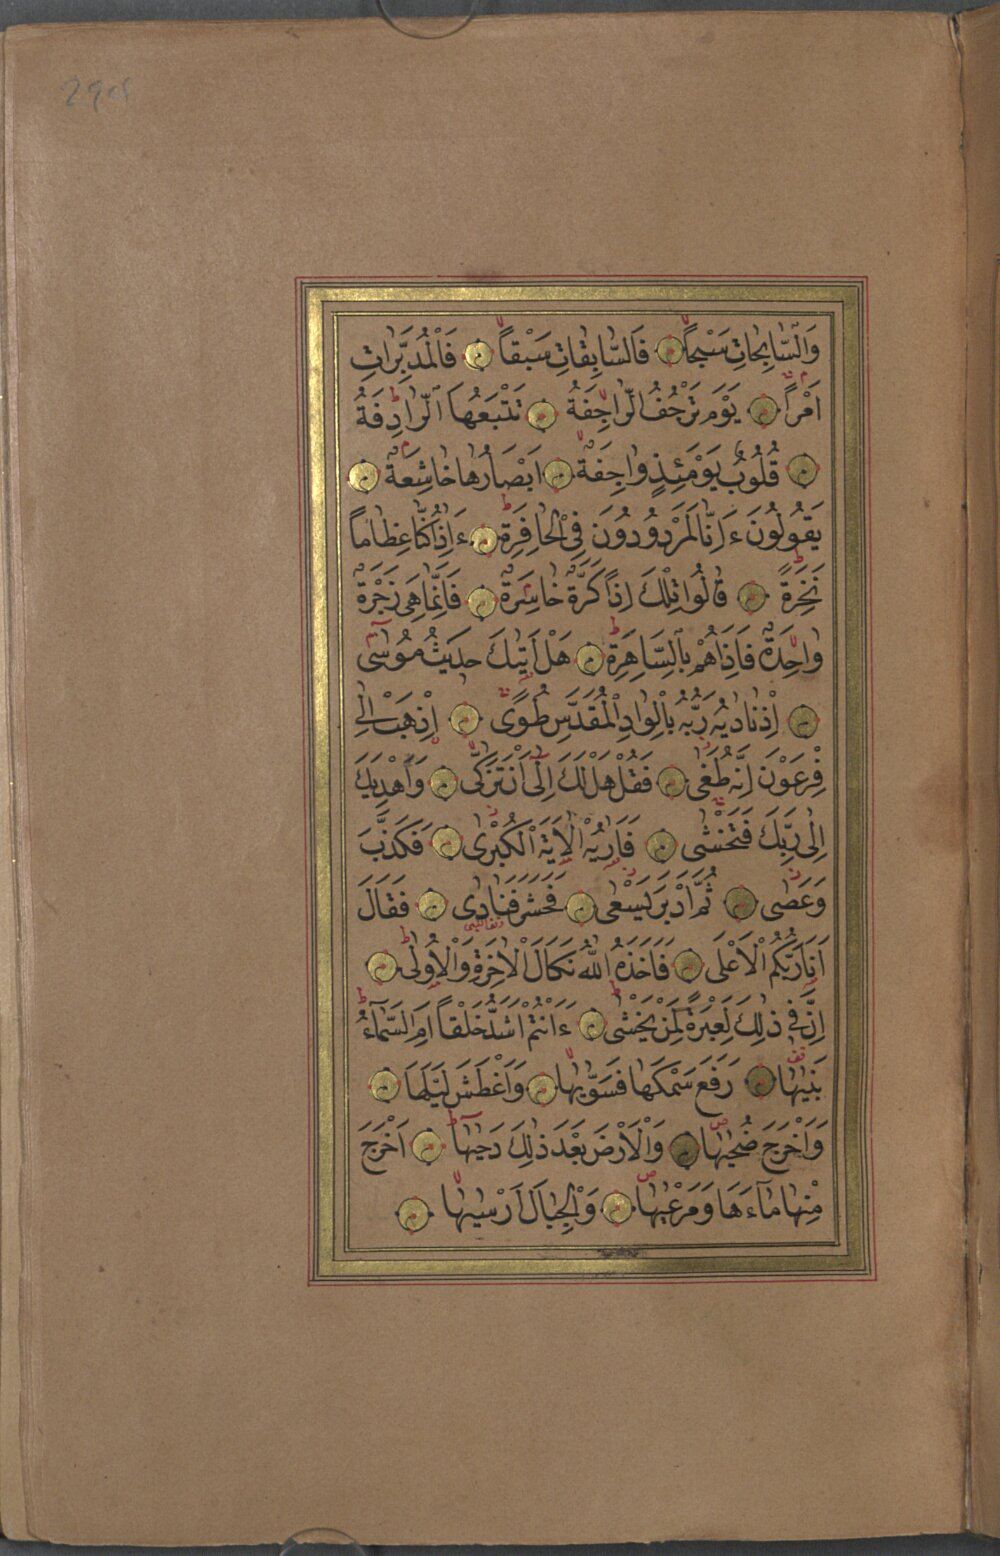 وَالسَّابِحَاتِ سَبْحاً ۝ فَالسَّابِقَاتِ سَبْقاً ۝ فَالْمُدَبِّرَاتِ
اَمْراً ۝ يَوْمَ تَرْجُفُ الرَّاجِفَةُ ۝ تَتْبَعُهَا الرَّادِفَةُ
۝ قُلُوبٌ يَوْمَئِذٍ وَاجِفَةٌ ۝ اَبْصَارُهَا خَاشِعَةٌ ۝
يَقُولُونَ ءَاِنَّا لَمَرْدُودُونَ فِي الْحَافِرَةِ ۝ ءَاِذَا كُنَّا عِظَاماً
نَخِرَةً ۝ قَالُوا تِلْكَ اِذاً كَرَّةٌ خَاسِرَةٌ ۝ فَاِنَّمَا هِيَ زَجْرَةٌ
وَاحِدَةٌ فَاِذَا هُمْ بِالسَّاهِرَةِ ۝ هَلْ اَتٰيكَ حَدِيثُ مُوسٰى
۝ اِذْ نَادٰيهُ رَبُّهُ بِالْوَادِ الْمُقَدَّسِ طُوًى ۝ اِذْهَبْ اِلٰى
فِرْعَوْنَ اِنَّهُ طَغٰى ۝ فَقُلْ هَلْ لَكَ اِلٰٓى اَنْ تَزَكّٰى ۝ وَاَهْدِيَكَ
اِلٰى رَبِّكَ فَتَخْشٰى ۝ فَاَرٰيهُ الْاٰيَةَ الْكُبْرٰى ۝ فَكَذَّبَ
وَعَصٰى ۝ ثُمَّ اَدْبَرَ يَسْعٰى ۝ فَحَشَرَ فَنَادٰى ۝ فَقَالَ
اَنَا رَبُّكُمُ الْاَعْلٰى ۝ فَاَخَذَهُ اللّٰهُ نَكَالَ الْاٰخِرَةِ وَالْاُولٰى ۝
اِنَّ فِي ذٰلِكَ لَعِبْرَةً لِمَنْ يَخْشٰى ۝ ءَاَنْتُمْ اَشَدُّ خَلْقاً اَمِ السَّمَٓاءُ
بَنٰيهَا ۝ رَفَعَ سَمْكَهَا فَسَوّٰيهَا ۝ وَاَغْطَشَ لَيْلَهَا
وَاَخْرَجَ ضُحٰيهَا ۝ وَالْاَرْضَ بَعْدَ ذٰلِكَ دَحٰيهَا ۝ اَخْرَجَ
مِنْهَا مَٓاءَهَا وَمَرْعٰيهَا ۝ وَالْجِبَالَ اَرْسٰيهَا ۝